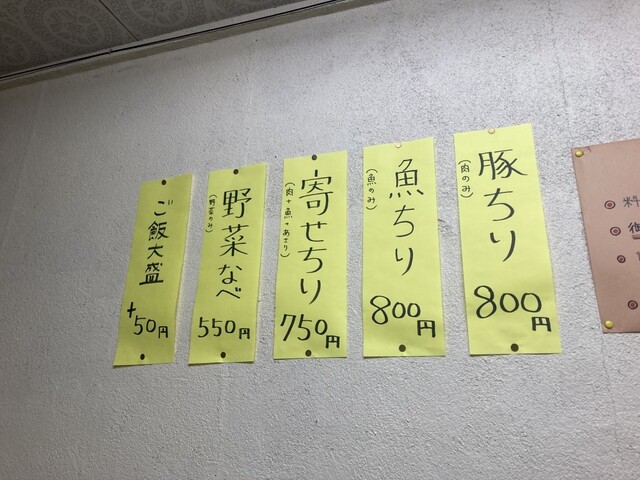 豚ちり
(肉のみ)
800円
魚ちり
(魚のみ)
800円
寄せちり
(肉+魚+あさり)
750円
野菜なべ
(野菜のみ)
550円
ご飯大盛
+50円
料
御